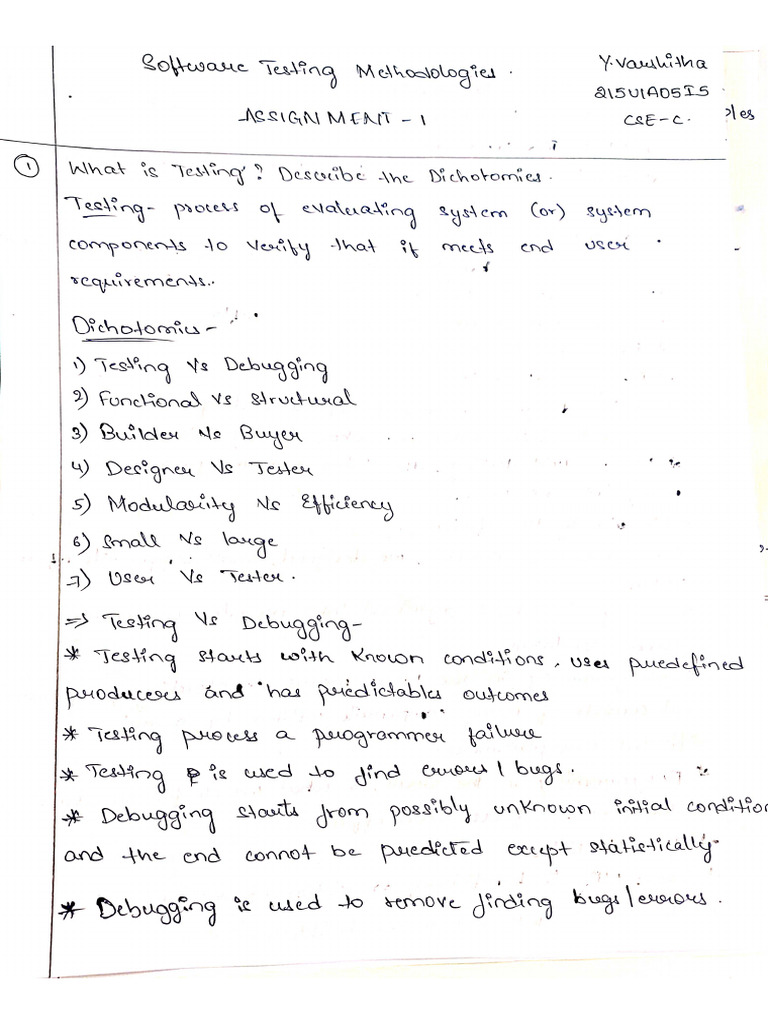 Software Testing Methodologies.
Y.Varshitha
215U1A05I5
ples
ASSIGNMENT-1
CSE-C.
① What is Testing? Describe the Dichotomies.
Testing- process of evaluating system (or) system
components to verify that it meets end user
requirements.
Dichotomies-
1) Testing Vs Debugging
2) Functional Vs Structural
3) Builder Vs Buyer
4) Designer Vs Tester
5) Modularity Vs Efficiency
6) Small Vs large
7) User Vs Tester.
=> Testing Vs Debugging-
* Testing starts with known conditions, uses predefined
producers and has predictables outcomes
* Testing process a programmer failure
* Testing is used to find errors/bugs.
* Debugging starts from possibly unknown initial condition
and the end connot be predicted except statistically.
* Debugging is used to remove finding bugs/errors.